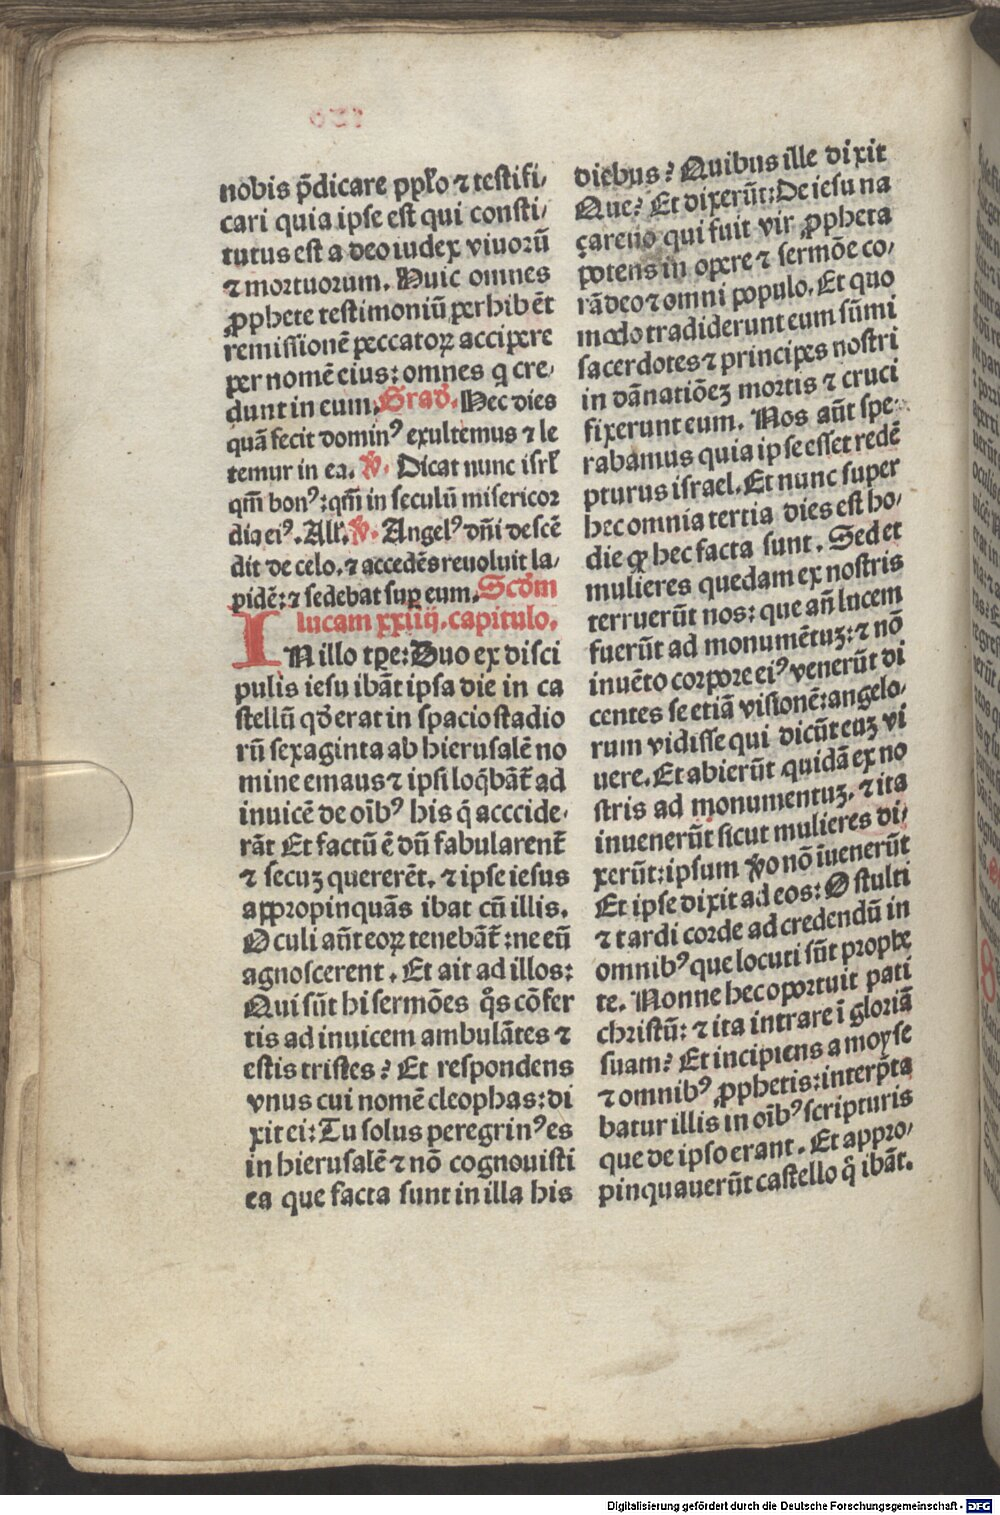 nobis p̃dicare ppl̃o ⁊ testifi⸗
cari quia ipse est qui consti⸗
tutus est a deo iudex viuorũ
⁊ mortuorum. Huic omnes
ꝓphete testimoniũ perhibẽt
remissionẽ peccatoꝝ accipere
per nomẽ eius: omnes q cre⸗
dunt in eum. Grad̃. Hec dies
quã fecit dominꝰ exultemus ⁊ le
temur in ea. ℣. Dicat nunc isrl̃
qm̃ bonꝰ: qm̃ in seculũ misericor
dia eiꝰ. All̃. ℣. Angelꝰ dñi descẽ
dit de celo. ⁊ accedẽs reuoluit la⸗
pidẽ: ⁊ sedebat suꝑ eum. Scd̃m
lucam xxiiij. capitulo.
IN illo tꝑe: Duo ex disci
pulis iesu ibãt ipsa die in ca
stellũ qd̃ erat in spacio stadio
rũ sexaginta ab hierusalẽ no
mine emaus ⁊ ipsi loq̃bãt̃ ad
inuicẽ de oĩbꝰ his q̃ acccide⸗
rãt Et factũ ẽ dũ fabularent̃
⁊ secuꝫ quererẽt. ⁊ ipse iesus
appropinquãs ibat cũ illis.
Oculi aũt eoꝝ tenebãt̃: ne eũ
agnoscerent. Et ait ad illos:
Qui sũt hi sermões q̃s cõfer
tis ad inuicem ambulãtes ⁊
estis tristes? Et respondens
vnus cui nomẽ cleophas: di
xit ei: Tu solus peregrinꝰ es
in hierusalẽ ⁊ nõ cognouisti
ea que facta sunt in illa his
diebus? Quibus ille dixit
Que? Et dixerũt: De iesu na
çareno qui fuit vir ꝓpheta
potens in opere ⁊ sermõe co⸗
rã deo ⁊ omni populo. Et quo
modo tradiderunt eum sũmi
sacerdotes ⁊ principes nostri
in dãnatiõeꝫ mortis ⁊ cruci
fixerunt eum. Nos aũt spe⸗
rabamus quia ipse esset redẽ
pturus israel. Et nunc super
hec omnia tertia dies est ho⸗
die ꝙ hec facta sunt. Sed et
mulieres quedam ex nostris
terruerũt nos: que añ lucem
fuerũt ad monumẽtuꝫ: ⁊ nõ
inuẽto corpore eiꝰ venerũt di
centes se etiã visionẽ: angelo⸗
rum vidisse qui dicũt euꝫ vi
uere. Et abierũt quidã ex no
stris ad monumentuꝫ. ⁊ ita
inuenerũt sicut mulieres di⸗
xerũt: ipsum ṽo nõ ĩuenerũt
Et ipse dixit ad eos: O stulti
⁊ tardi corde ad credendũ in
omnibꝰ que locuti sũt prophe
te. Nonne hec oportuit pati
christũ: ⁊ ita intrare ĩ gloriã
suam? Et incipiens a moyse
⁊ omnibꝰ ꝓphetis: interp̃ta
batur illis in oĩbꝰ scripturis
que de ipso erant. Et appro⸗
pinquauerũt castello q̃ ibãt.
Digitalisierung gefördert durch die Deutsche Forschungsgemeinschaft - DFG